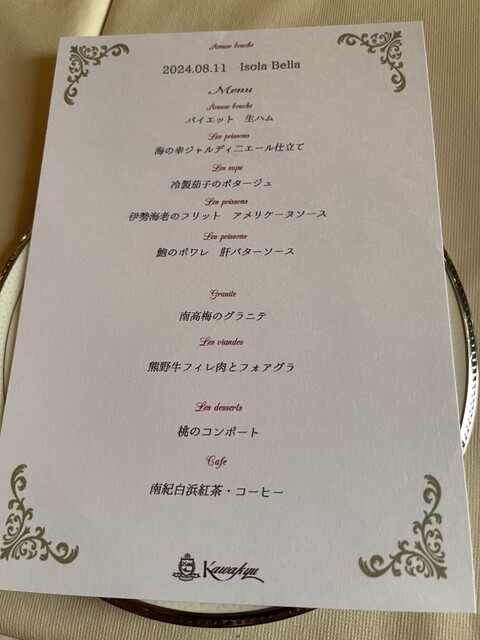 Amuse bouche
2024.08.11 Isola Bella
Menu
Amuse bouche
パイエット 生ハム
Les poissons
海の幸ジャルディニエール仕立て
Les supu
冷製茄子のポタージュ
Les poissons
伊勢海老のフリット アメリケーヌソース
Les poissons
鮑のポワレ 肝バターソース
Granite
南高梅のグラニテ
Les viandes
熊野牛フィレ肉とフォアグラ
Les desserts
桃のコンポート
Cafe
南紀白浜紅茶・コーヒー
Kawakyu